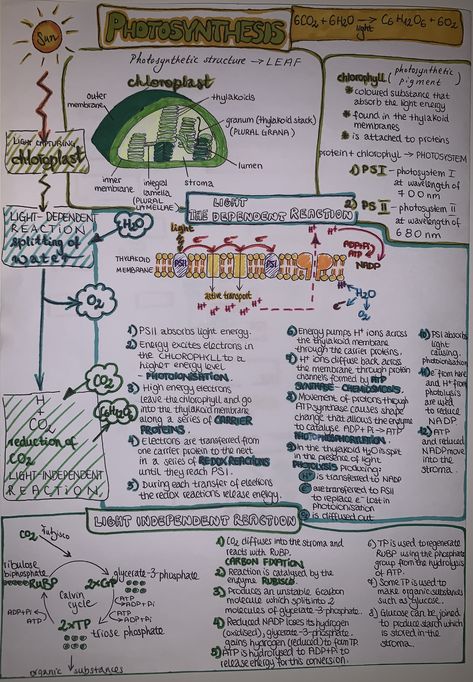 Sun
PHOTOSYNTHESIS
6CO2 + 6H2O → C6H12O6 + 6O2
light
Photosynthetic structure → LEAF
chloroplast
outer
membrane
thylakoids
granum (thylakoid stack)
(PLURAL GRANA)
lumen
inner
membrane
integral
lamella
(PLURAL
LAMELLAE)
stroma
chlorophyll (photosynthetic
pigment)
* coloured substance that
absorb the light energy
* found in the thylakoid
membranes
* is attached to proteins
protein + chlorophyll → PHOTOSYSTEM
1) PS I - photosystem I
at wavelength of
700nm
2) PS II - photosystem II
at wavelength of
680nm
LIGHT CAPTURING
chloroplast
LIGHT-DEPENDENT
REACTION
splitting of
water
H2O
O2
CO2
C6H12O6
H
+
CO2
reduction of
CO2
LIGHT-INDEPENDENT
REACTION
LIGHT
THE DEPENDENT REACTION
light
THYLAKOID
MEMBRANE
PSII
PSI
e- e- e-
H+ H+ H+
active transport
H+
ADP+Pi
ATP
NADP
H2O
H+
O2
1) PSII absorbs light energy.
2) Energy excites electrons in
the CHLOROPHYLL to a
higher energy level
- PHOTOIONISATION
3) High energy electrons
leave the chlorophyll and go
into the thylakoid membrane
along a series of CARRIER
PROTEINS.
4) Electrons are transferred from
one carrier protein to the next
in a series of REDOX REACTIONS
until they reach PSI.
5) During each transfer of electrons
the redox reactions release energy.
6) Energy pumps H+ ions across
the thylakoid membrane
through the carrier proteins.
7) H+ ions diffuse back across
the membrane, through protein
channels formed by ATP
SYNTHASE - CHEMIOSMOSIS.
8) Movement of protons though
ATPsynthase causes shape
change that allows the enzyme
to catalyse ADP+Pi → ATP
PHOTOPHOSPHORYLATION.
9) In the thylakoid H2O is split
in the presence of light
PHOTOLYSIS producing:
H+ is transferred to NADP
e- are transferred to PSII
to replace e- lost in
photoionisation
O2 is diffused out
10) PSI absorbs
light
causing
photoionisation
11) e- from here
and H+ from
photolysis
are used
to reduce
NADP.
12) ATP
and reduced
NADP move
into the
stroma.
LIGHT INDEPENDENT REACTION
CO2
rubisco
ribulose
biphosphate
RuBP
glycerate-3-phosphate
2xGP
Calvin
cycle
ATP
ADP+Pi
ATP
ADP+Pi
ATP
ADP+Pi
2xTP
triose phosphate
organic substances
1) CO2 diffuses into the stroma and
reacts with RuBP.
CARBON FIXATION
2) Reaction is catalysed by the
enzyme RUBISCO
3) Produces an unstable 6carbon
molecule which splits into 2
molecules of glycerate-3-phosphate.
4) Reduced NADP loses its hydrogen
(oxidised), glycerate-3-phosphate
gains hydrogen (reduced) to form TP.
5) ATP is hydrolised to ADP+Pi to
release energy for this conversion.
6) TP is used to regenerate
RuBP using the phosphate
group from the hydrolysis
of ATP.
7) Some TP is used to
make organic substances
such as glucose.
8) Glucose can be joined
to produce starch which
is stored in the
stroma.